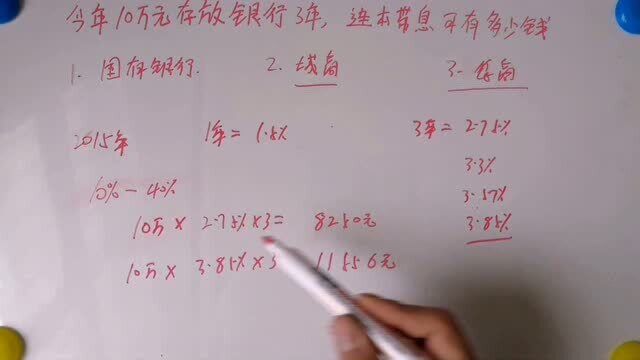 今年10万元存放银行3年，连本带息可有多少钱
1. 国有银行. 2. 城商 3.
2015年 1年=1.5% 3年=2.75%
3.3%
10%-40% 3.57%
10万×2.75%×3= 8250元 3.85%
10万×3.85%×3 11550元